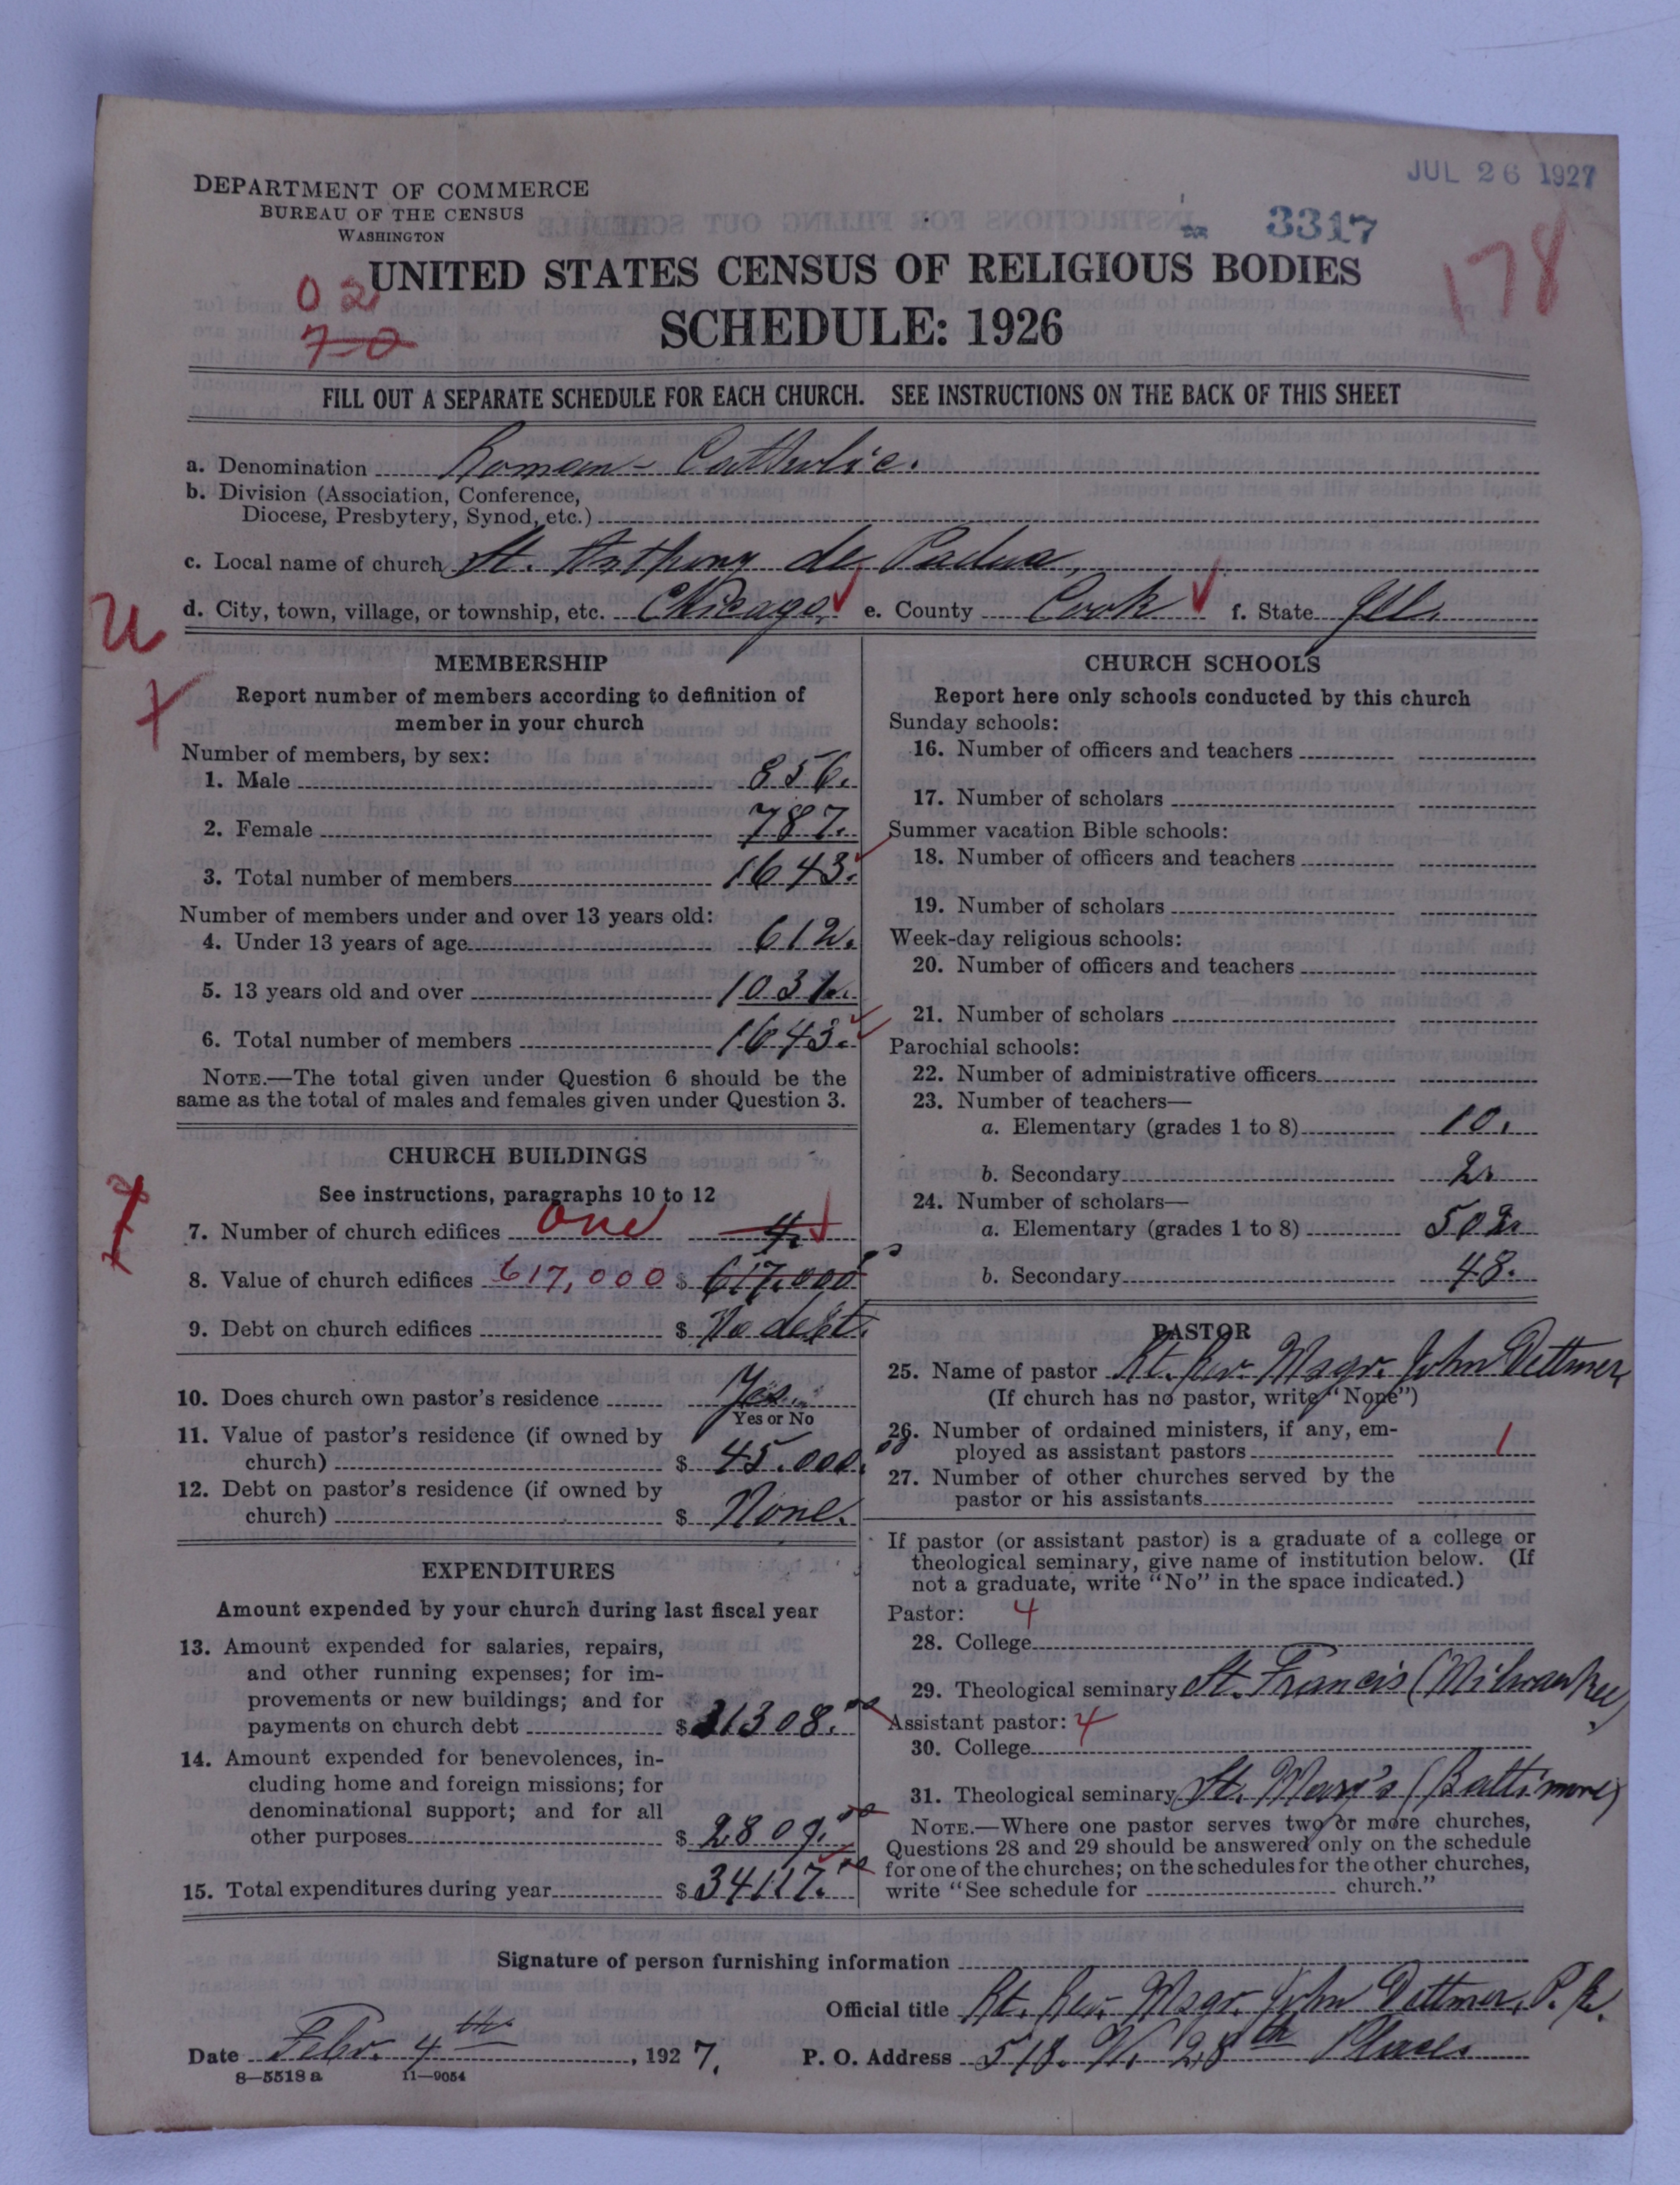 JUL 26 1927
DEPARTMENT OF COMMERCE
BUREAU OF THE CENSUS
WASHINGTON
3317
178
UNITED STATES CENSUS OF RELIGIOUS BODIES
02
70
SCHEDULE: 1926
FILL OUT A SEPARATE SCHEDULE FOR EACH CHURCH. SEE INSTRUCTIONS ON THE BACK OF THIS SHEET
a. Denomination Roman-Catholic.
b. Division (Association, Conference,
Diocese, Presbytery, Synod, etc.)
c. Local name of church St. Anthony de Padua,
d. City, town, village, or township, etc. Chicago, e. County Cook f. State Ill.
MEMBERSHIP
Report number of members according to definition of
member in your church
Number of members, by sex:
1. Male 856.
2. Female 787.
3. Total number of members 1643.
Number of members under and over 13 years old:
4. Under 13 years of age 612.
5. 13 years old and over 1031.
6. Total number of members 1643.
NOTE.—The total given under Question 6 should be the
same as the total of males and females given under Question 3.
CHURCH BUILDINGS
See instructions, paragraphs 10 to 12
7. Number of church edifices one 4.
8. Value of church edifices 617,000 $ 617,000 00
9. Debt on church edifices $ No debt.
10. Does church own pastor's residence Yes.
Yes or No
11. Value of pastor's residence (if owned by
church) $ 45.000. 00
12. Debt on pastor's residence (if owned by
church) $ None.
EXPENDITURES
Amount expended by your church during last fiscal year
13. Amount expended for salaries, repairs,
and other running expenses; for im-
provements or new buildings; and for
payments on church debt $ 31308. 00
14. Amount expended for benevolences, in-
cluding home and foreign missions; for
denominational support; and for all
other purposes $ 2809. 00
15. Total expenditures during year $ 34117. 00
CHURCH SCHOOLS
Report here only schools conducted by this church
Sunday schools:
16. Number of officers and teachers
17. Number of scholars
Summer vacation Bible schools:
18. Number of officers and teachers
19. Number of scholars
Week-day religious schools:
20. Number of officers and teachers
21. Number of scholars
Parochial schools:
22. Number of administrative officers
23. Number of teachers—
a. Elementary (grades 1 to 8) 10.
b. Secondary 2.
24. Number of scholars—
a. Elementary (grades 1 to 8) 502.
b. Secondary 48.
PASTOR
25. Name of pastor Rt. Rev. Msgr. John Dettmer,
(If church has no pastor, write "None")
26. Number of ordained ministers, if any, em-
ployed as assistant pastors 1
27. Number of other churches served by the
pastor or his assistants
If pastor (or assistant pastor) is a graduate of a college or
theological seminary, give name of institution below. (If
not a graduate, write "No" in the space indicated.)
Pastor: 4
28. College
29. Theological seminary St. Francis (Milwaukee)
Assistant pastor: 4
30. College
31. Theological seminary St. Mary's (Baltimore)
NOTE.—Where one pastor serves two or more churches,
Questions 28 and 29 should be answered only on the schedule
for one of the churches; on the schedules for the other churches,
write "See schedule for church."
Signature of person furnishing information
Official title Rt. Rev. Msgr. John Dettmer, P. R.
Date Febr. 4th, 1927. P. O. Address 518. W. 28th Place.
8—5518a 11—9054